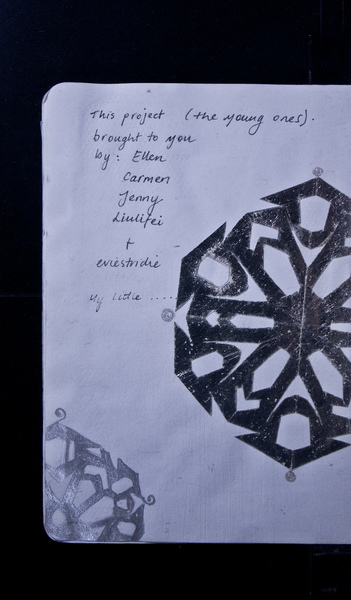 This project (the young ones).
brought to you
by: Ellen
Carmen
Jenny
Liulifei
+
eviestridie
My little .....